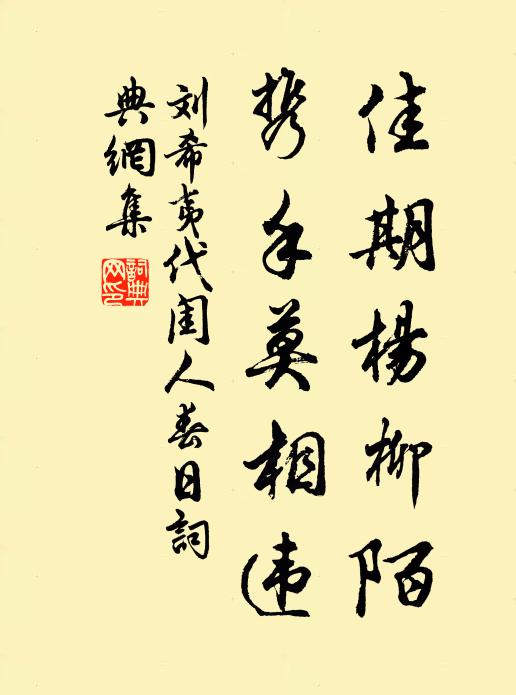 佳期楊柳陌
携手莫相违
刘希夷代闺人春日詞
典網集
詞典网印